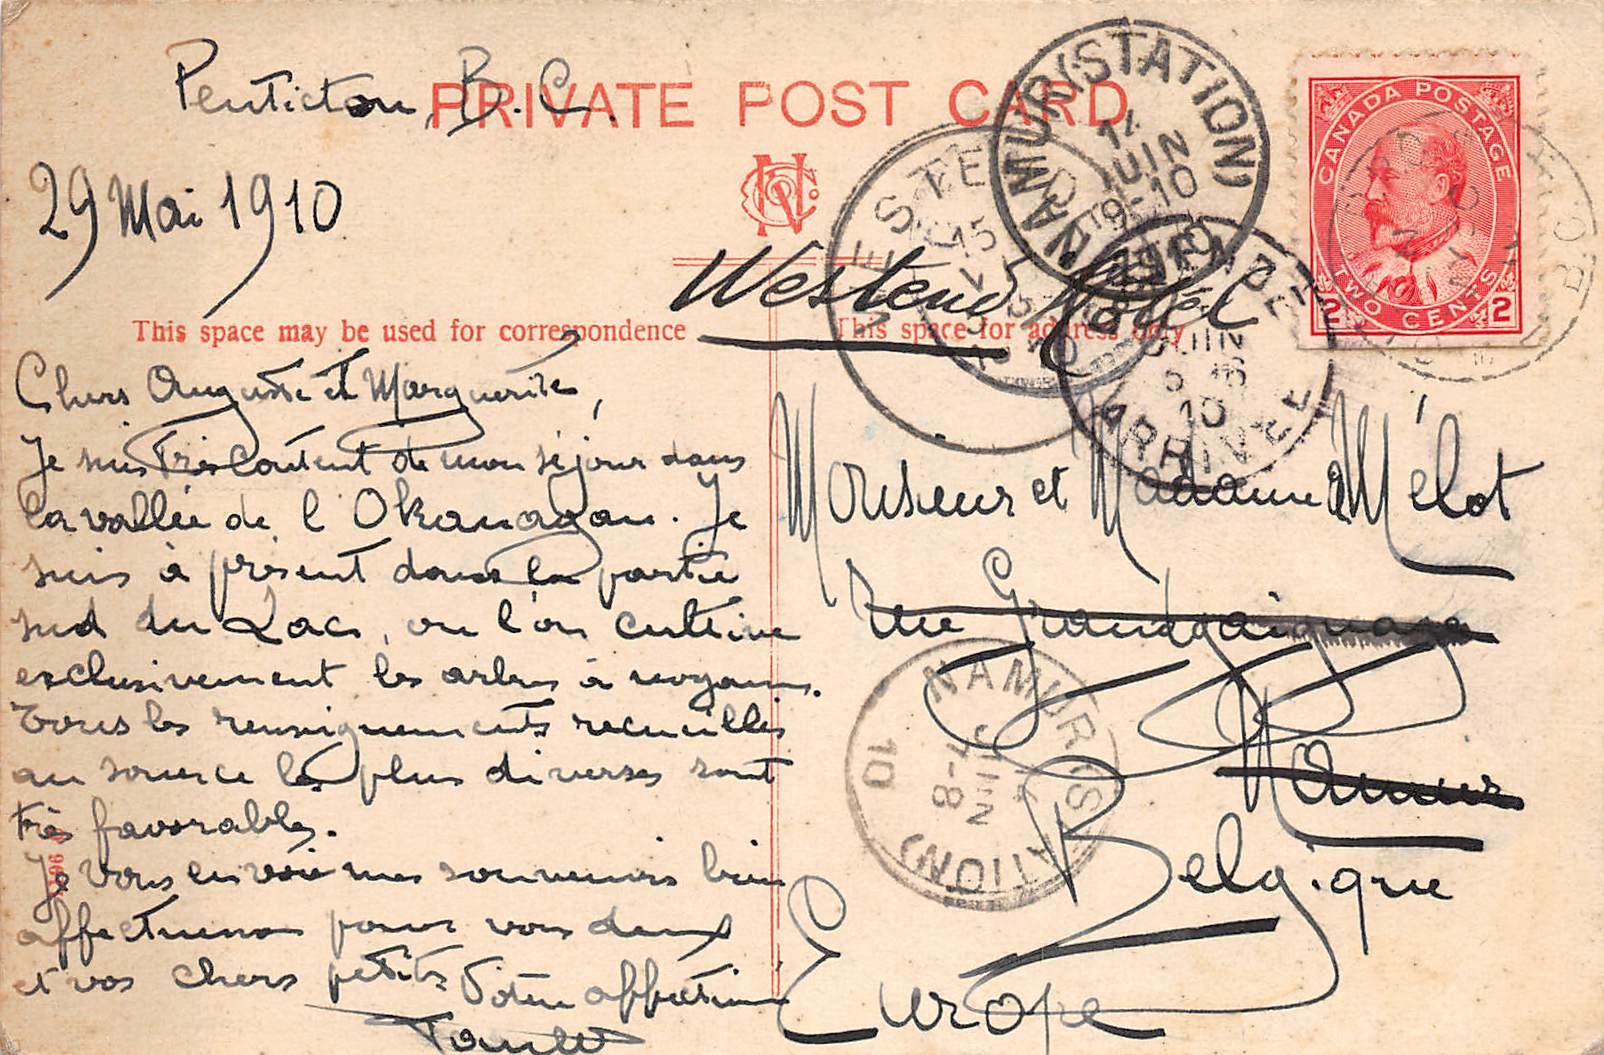 Penticton, B.C.
PRIVATE POST CARD
29 Mai 1910
NAMUR (STATION)
14
JUIN
19-10
1910
CANADA POSTAGE
TWO CENTS
2 2
B.C.
Westend Hotel
This space may be used for correspondence
This space for address only
JUIN
10
ARRIVÉE
Chers Auguste et Marguerite,
Je suis très content de mon séjour dans
la vallée de l'Okanagan. Je
suis à présent dans la partie
sud du Lac, ou l'on cultive
exclusivement les arbres à noyaux.
Tous les renseignements recueillis
au source les plus diverses sont
très favorables.
Je vous envoie mes souvenirs bien
affectueux pour vous deux
et vos chers petits
Votre affectionné
Monsieur et Madame Mélot
Rue Grandgaignage
Namur
Belgique
Europe
NAMUR (STATION)
JUIN
10